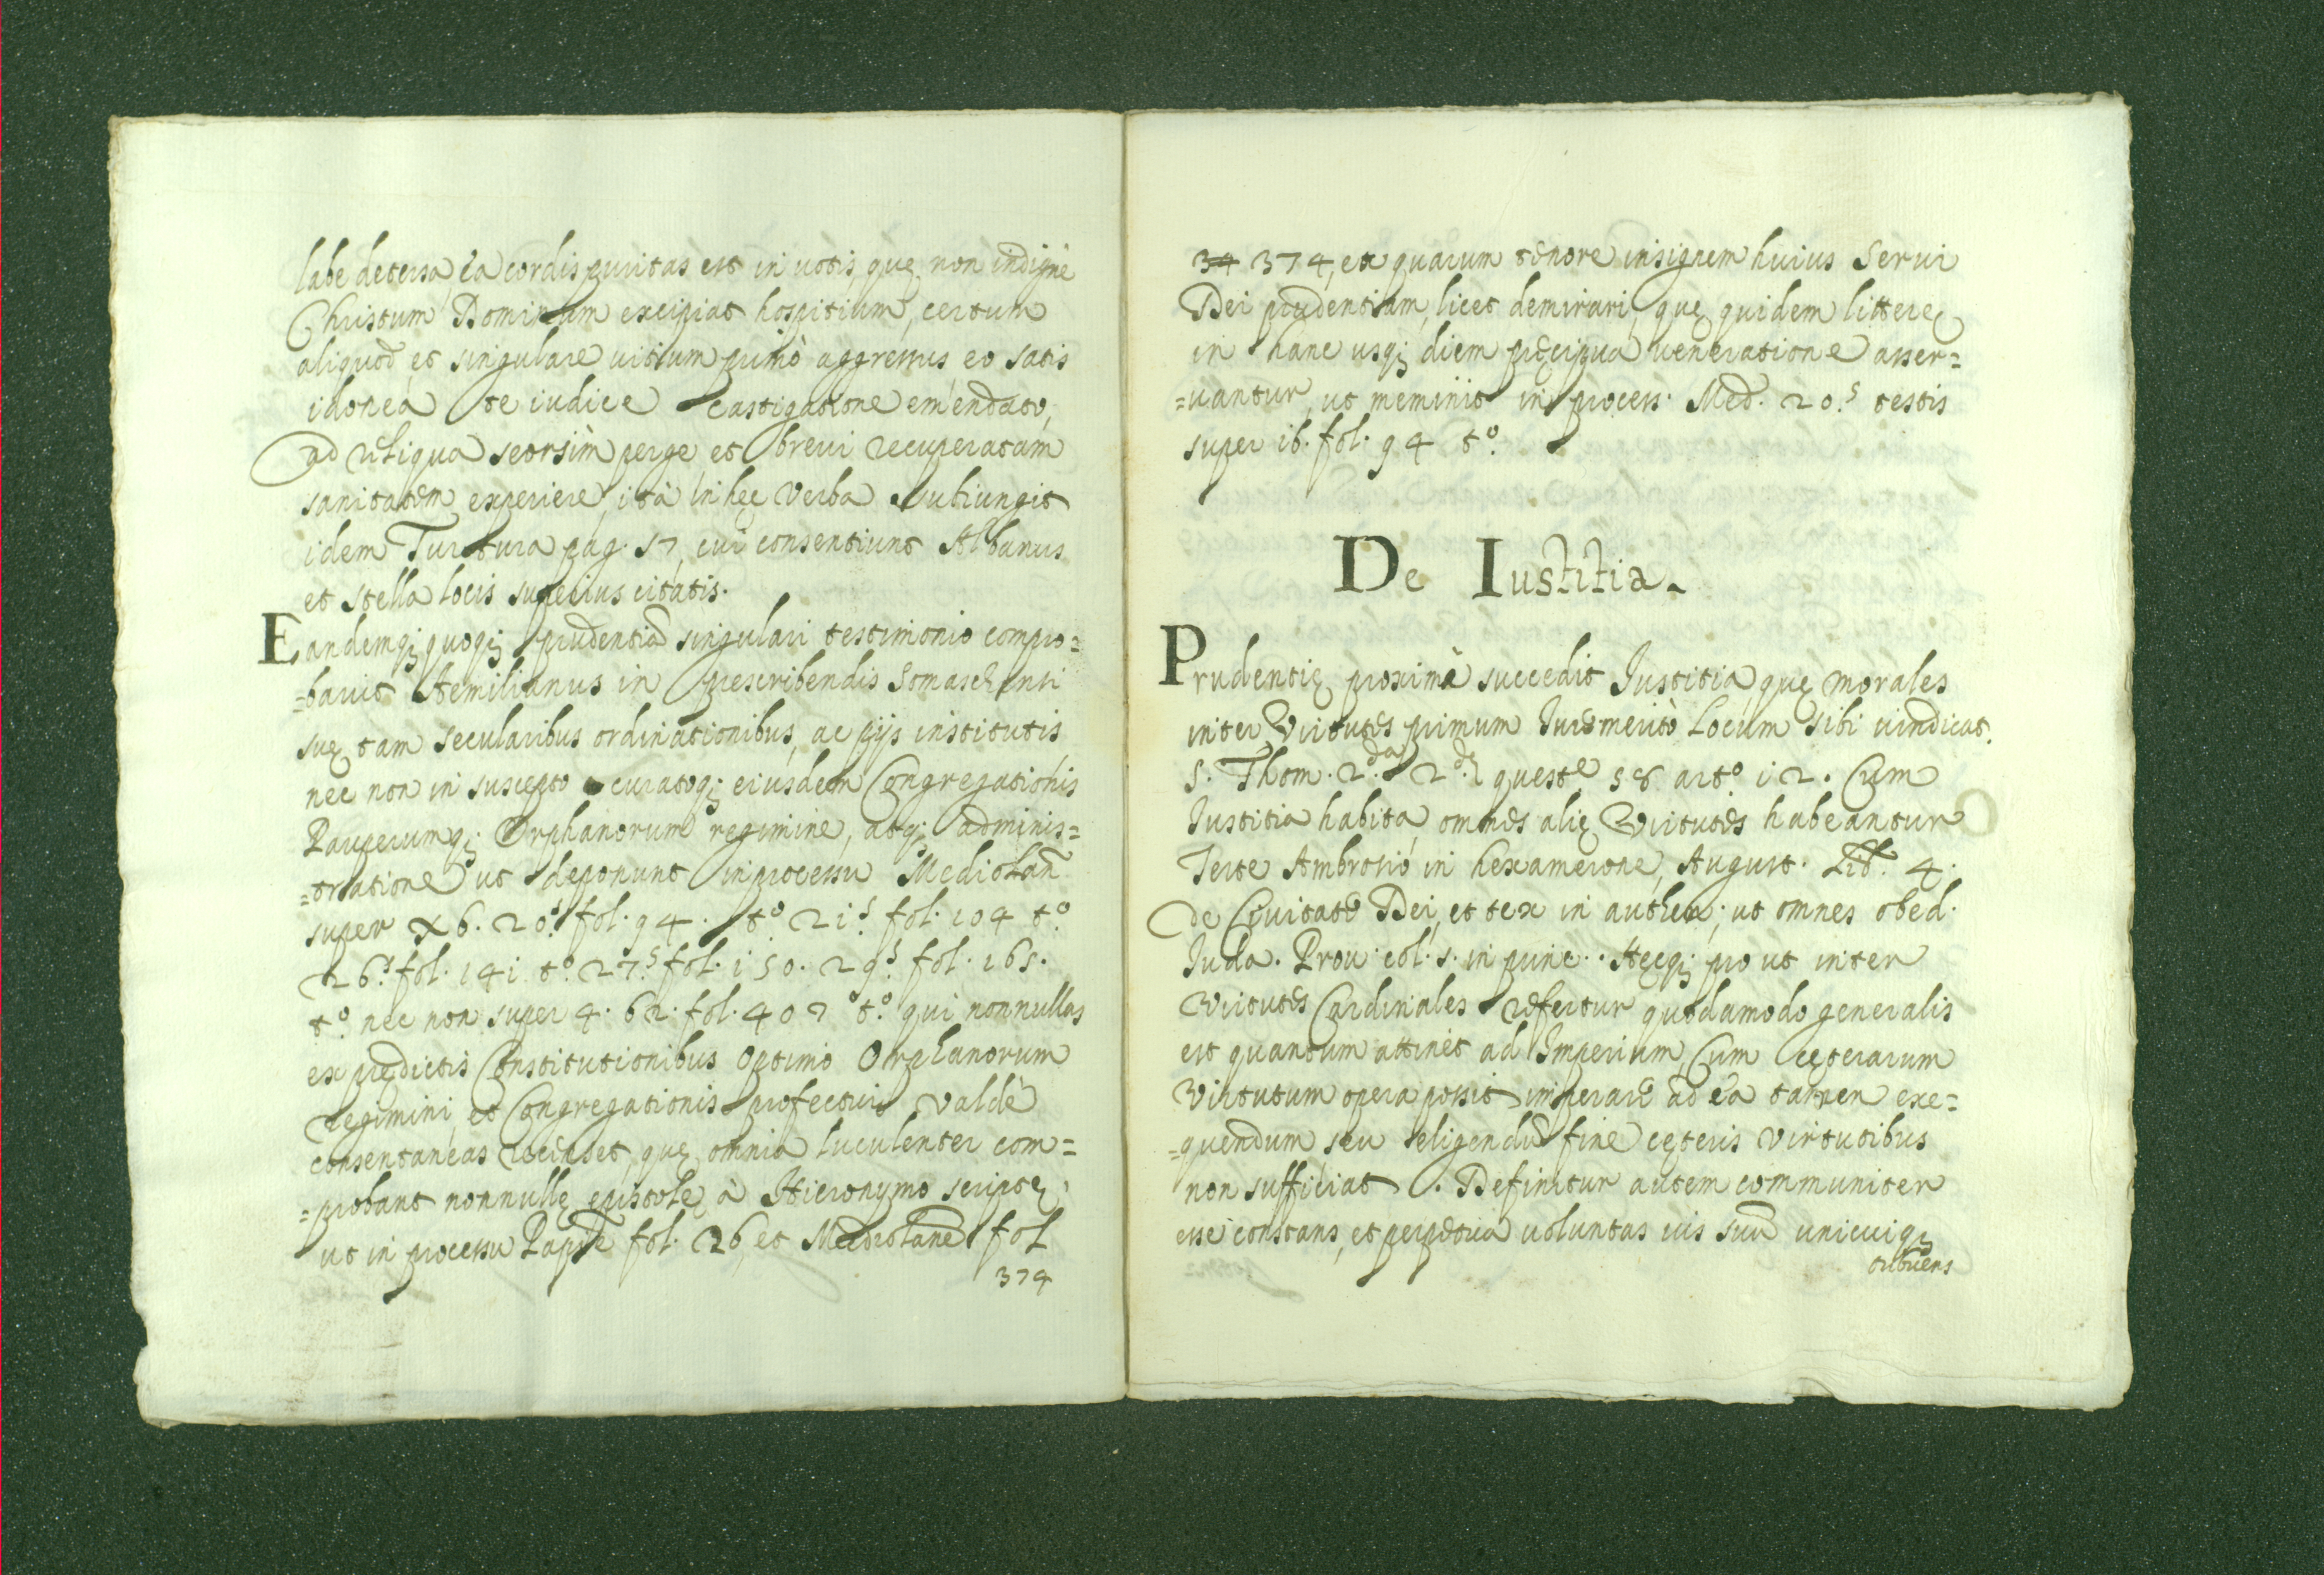 labe detersa, ea cordis puritas est in uotis, quę non indignè
Christum Dominum excipiat hospitium, certum
aliquod et singulare uitium primò aggressus eo satis
idonea te iudice castigatione emendato,
ad reliqua seorsim perge, et breui recuperatam
sanitatem experiere, ità in hęc Verba subiungit
idem Turtura pag. 57, cui consentiunt Albanus
et Stella locis superius citatis.
Eandemq; quoq; prudentia singulari testimonio compro=
=bauit Aemilianus in prescribendis Somaschensi
suę tam secularibus ordinationibus, ac pijs institutis
nec non in suscepto curatoq; eiusdem Congregationis
Pauperumq; Orphanorum regimine, atq; adminis=
=tratione ut deponunt in processu Mediolan.
super X6. 20.s fol. 94. to. 21.s fol. 104 to.
26.s fol. 141 to. 27.s fol. 150. 29.s fol. 165.
to. nec non super 4. 62. fol. 407 to. qui nonnullas
ex prędictis Constitutionibus optimo Orphanorum
regimini, et Congregationis profectui valdè
consentaneas recenset, quę omnia luculenter com=
=probant nonnullę epistolę à Hieronymo scriptę
ut in processu Papię fol. 26, et Mediolane fol
374
34 374, ex quarum tenore insignem huius Serui
Dei prudentiam, licet demirari, quę quidem litterę
in hanc usq; diem pręcipua ueneratione asser=
=uantur, ut meminit in process. Med. 20.s testis
super 16. fol. 94 to.
De Iustitia.
Prudentię proximè succedit Iustitia quę morales
inter Virtutes primum Iure merito Locum sibi uindicat.
S. Thom. 2.da 2.dę quest.e 58 arto. 12. Cum
Iustitia habita omnes alię Virtutes habeantur
Teste Ambrosio in hexamerone, August. Lib. 4.
de Ciuitate Dei, et tex in authen; ut omnes obed.
Iuda. Prou. col. s. in princ.. Hęcq; pro ut inter
Virtutes Cardinales refertur quodamodo generalis
est quantum attinet ad Imperium, Cum cęterarum
Virtutum opera possit imperare ad ea tamen exe=
=quendum seu eligendũ sine cęteris Virtutibus
non sufficiat. Definitur autem communiter
esse constans, et perpetua uoluntas ius suũ unicuiq;
tribuens